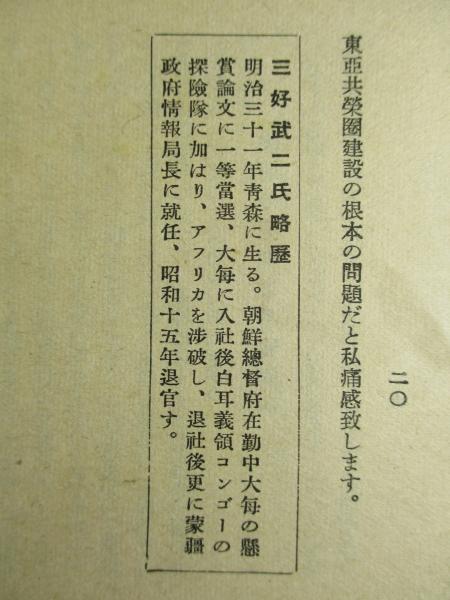 二〇
東亞共榮圈建設の根本の問題だと私痛感致します。
三好武二氏略歷
明治三十一年靑森に生る。朝鮮總督府在勤中大每の懸
賞論文に一等當選、大每に入社後白耳義領コンゴーの
探險隊に加はり、アフリカを涉破し、退社後更に蒙疆
政府情報局長に就任、昭和十五年退官す。